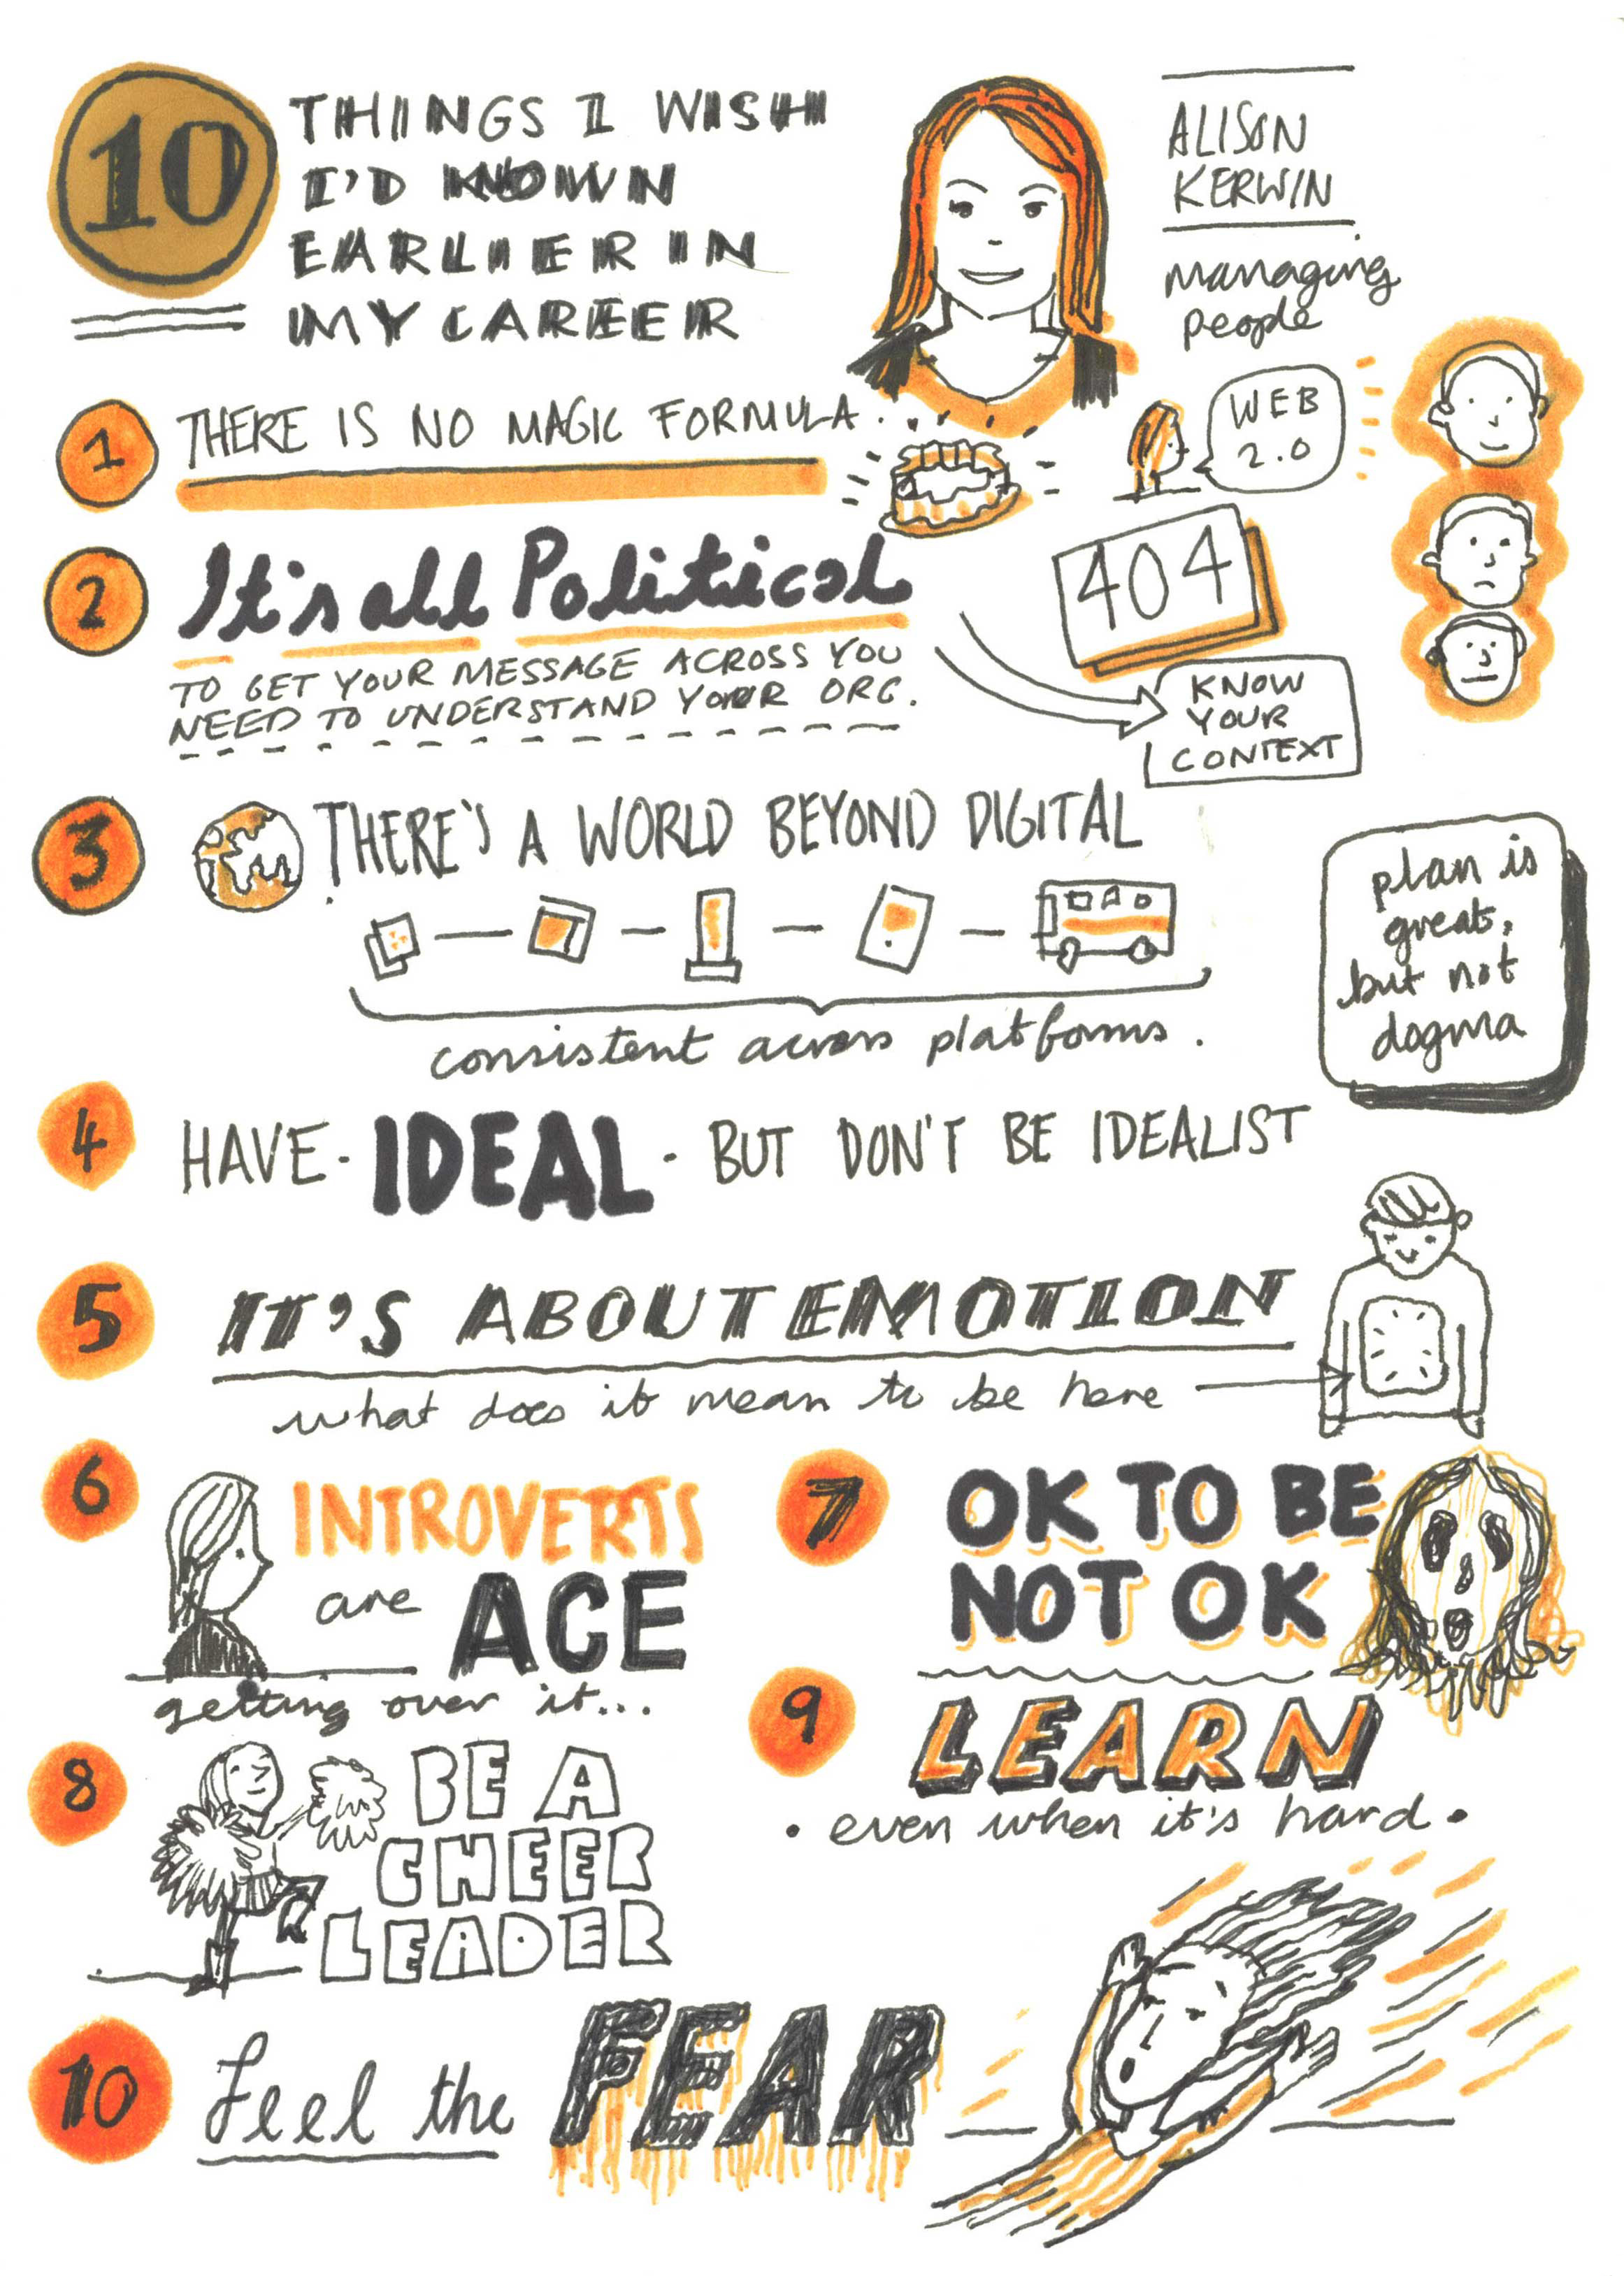 10
THINGS I WISH
I'D KNOWN
EARLIER IN
MY CAREER
ALISON
KERWIN
managing
people
1
THERE IS NO MAGIC FORMULA.
WEB
2.0
2
It's all Political
TO GET YOUR MESSAGE ACROSS YOU
NEED TO UNDERSTAND YOUR ORG.
404
KNOW
YOUR
CONTEXT
3
THERE'S A WORLD BEYOND DIGITAL
consistent across platforms.
plan is
great,
but not
dogma
4
HAVE · IDEAL · BUT DON'T BE IDEALIST
5
IT'S ABOUT EMOTION
what does it mean to be here
6
INTROVERTS
are ACE
getting over it...
7
OK TO BE
NOT OK
8
BE A
CHEER
LEADER
9
LEARN
· even when it's hard ·
10
Feel the FEAR